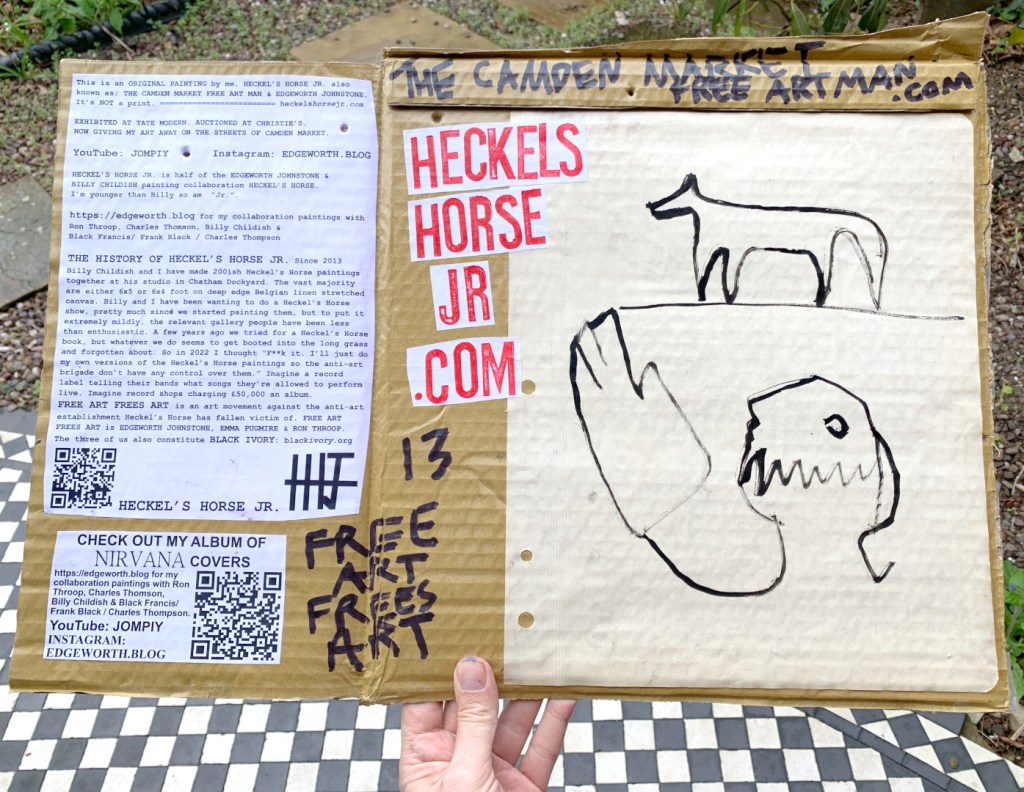 This is an ORIGINAL PAINTING by me, HECKEL'S HORSE JR. also
known as: THE CAMDEN MARKET FREE ART MAN & EDGEWORTH JOHNSTONE.
It's NOT a print. ======================== heckelshorsejr.com
EXHIBITED AT TATE MODERN. AUCTIONED AT CHRISTIE'S.
NOW GIVING MY ART AWAY ON THE STREETS OF CAMDEN MARKET.
YouTube: JOMPIY Instagram: EDGEWORTH.BLOG
HECKEL'S HORSE JR. is half of the EDGEWORTH JOHNSTONE &
BILLY CHILDISH painting collaboration HECKEL'S HORSE.
I'm younger than Billy so am "Jr.".
https://edgeworth.blog for my collaboration paintings with
Ron Throop, Charles Thomson, Billy Childish &
Black Francis/ Frank Black / Charles Thompson
THE HISTORY OF HECKEL'S HORSE JR. Since 2013
Billy Childish and I have made 200ish Heckel's Horse paintings
together at his studio in Chatham Dockyard. The vast majority
are either 6x5 or 6x4 foot on deep edge Belgian linen stretched
canvas. Billy and I have been wanting to do a Heckel's Horse
show, pretty much since we started painting them, but to put it
extremely mildly, the relevant gallery people have been less
than enthusiastic. A few years ago we tried for a Heckel's Horse
book, but whatever we do seems to get booted into the long grass
and forgotten about. So in 2022 I thought "F**k it. I'll just do
my own versions of the Heckel's Horse paintings so the anti-art
brigade don't have any control over them." Imagine a record
label telling their bands what songs they're allowed to perform
live. Imagine record shops charging £50,000 an album.
FREE ART FREES ART is an art movement against the anti-art
establishment Heckel's Horse has fallen victim of. FREE ART
FREES ART is EDGEWORTH JOHNSTONE, EMMA PUGMIRE & RON THROOP.
The three of us also constitute BLACK IVORY: blackivory.org
HECKEL'S HORSE JR.
HJ
CHECK OUT MY ALBUM OF
NIRVANA COVERS
https://edgeworth.blog for my
collaboration paintings with Ron
Throop, Charles Thomson,
Billy Childish & Black Francis/
Frank Black / Charles Thompson.
YouTube: JOMPIY
INSTAGRAM:
EDGEWORTH.BLOG
THE CAMDEN MARKET
FREE ARTMAN
.COM
HECKELS
HORSE
JR
.COM
13
FREE
ART
FREES
ART